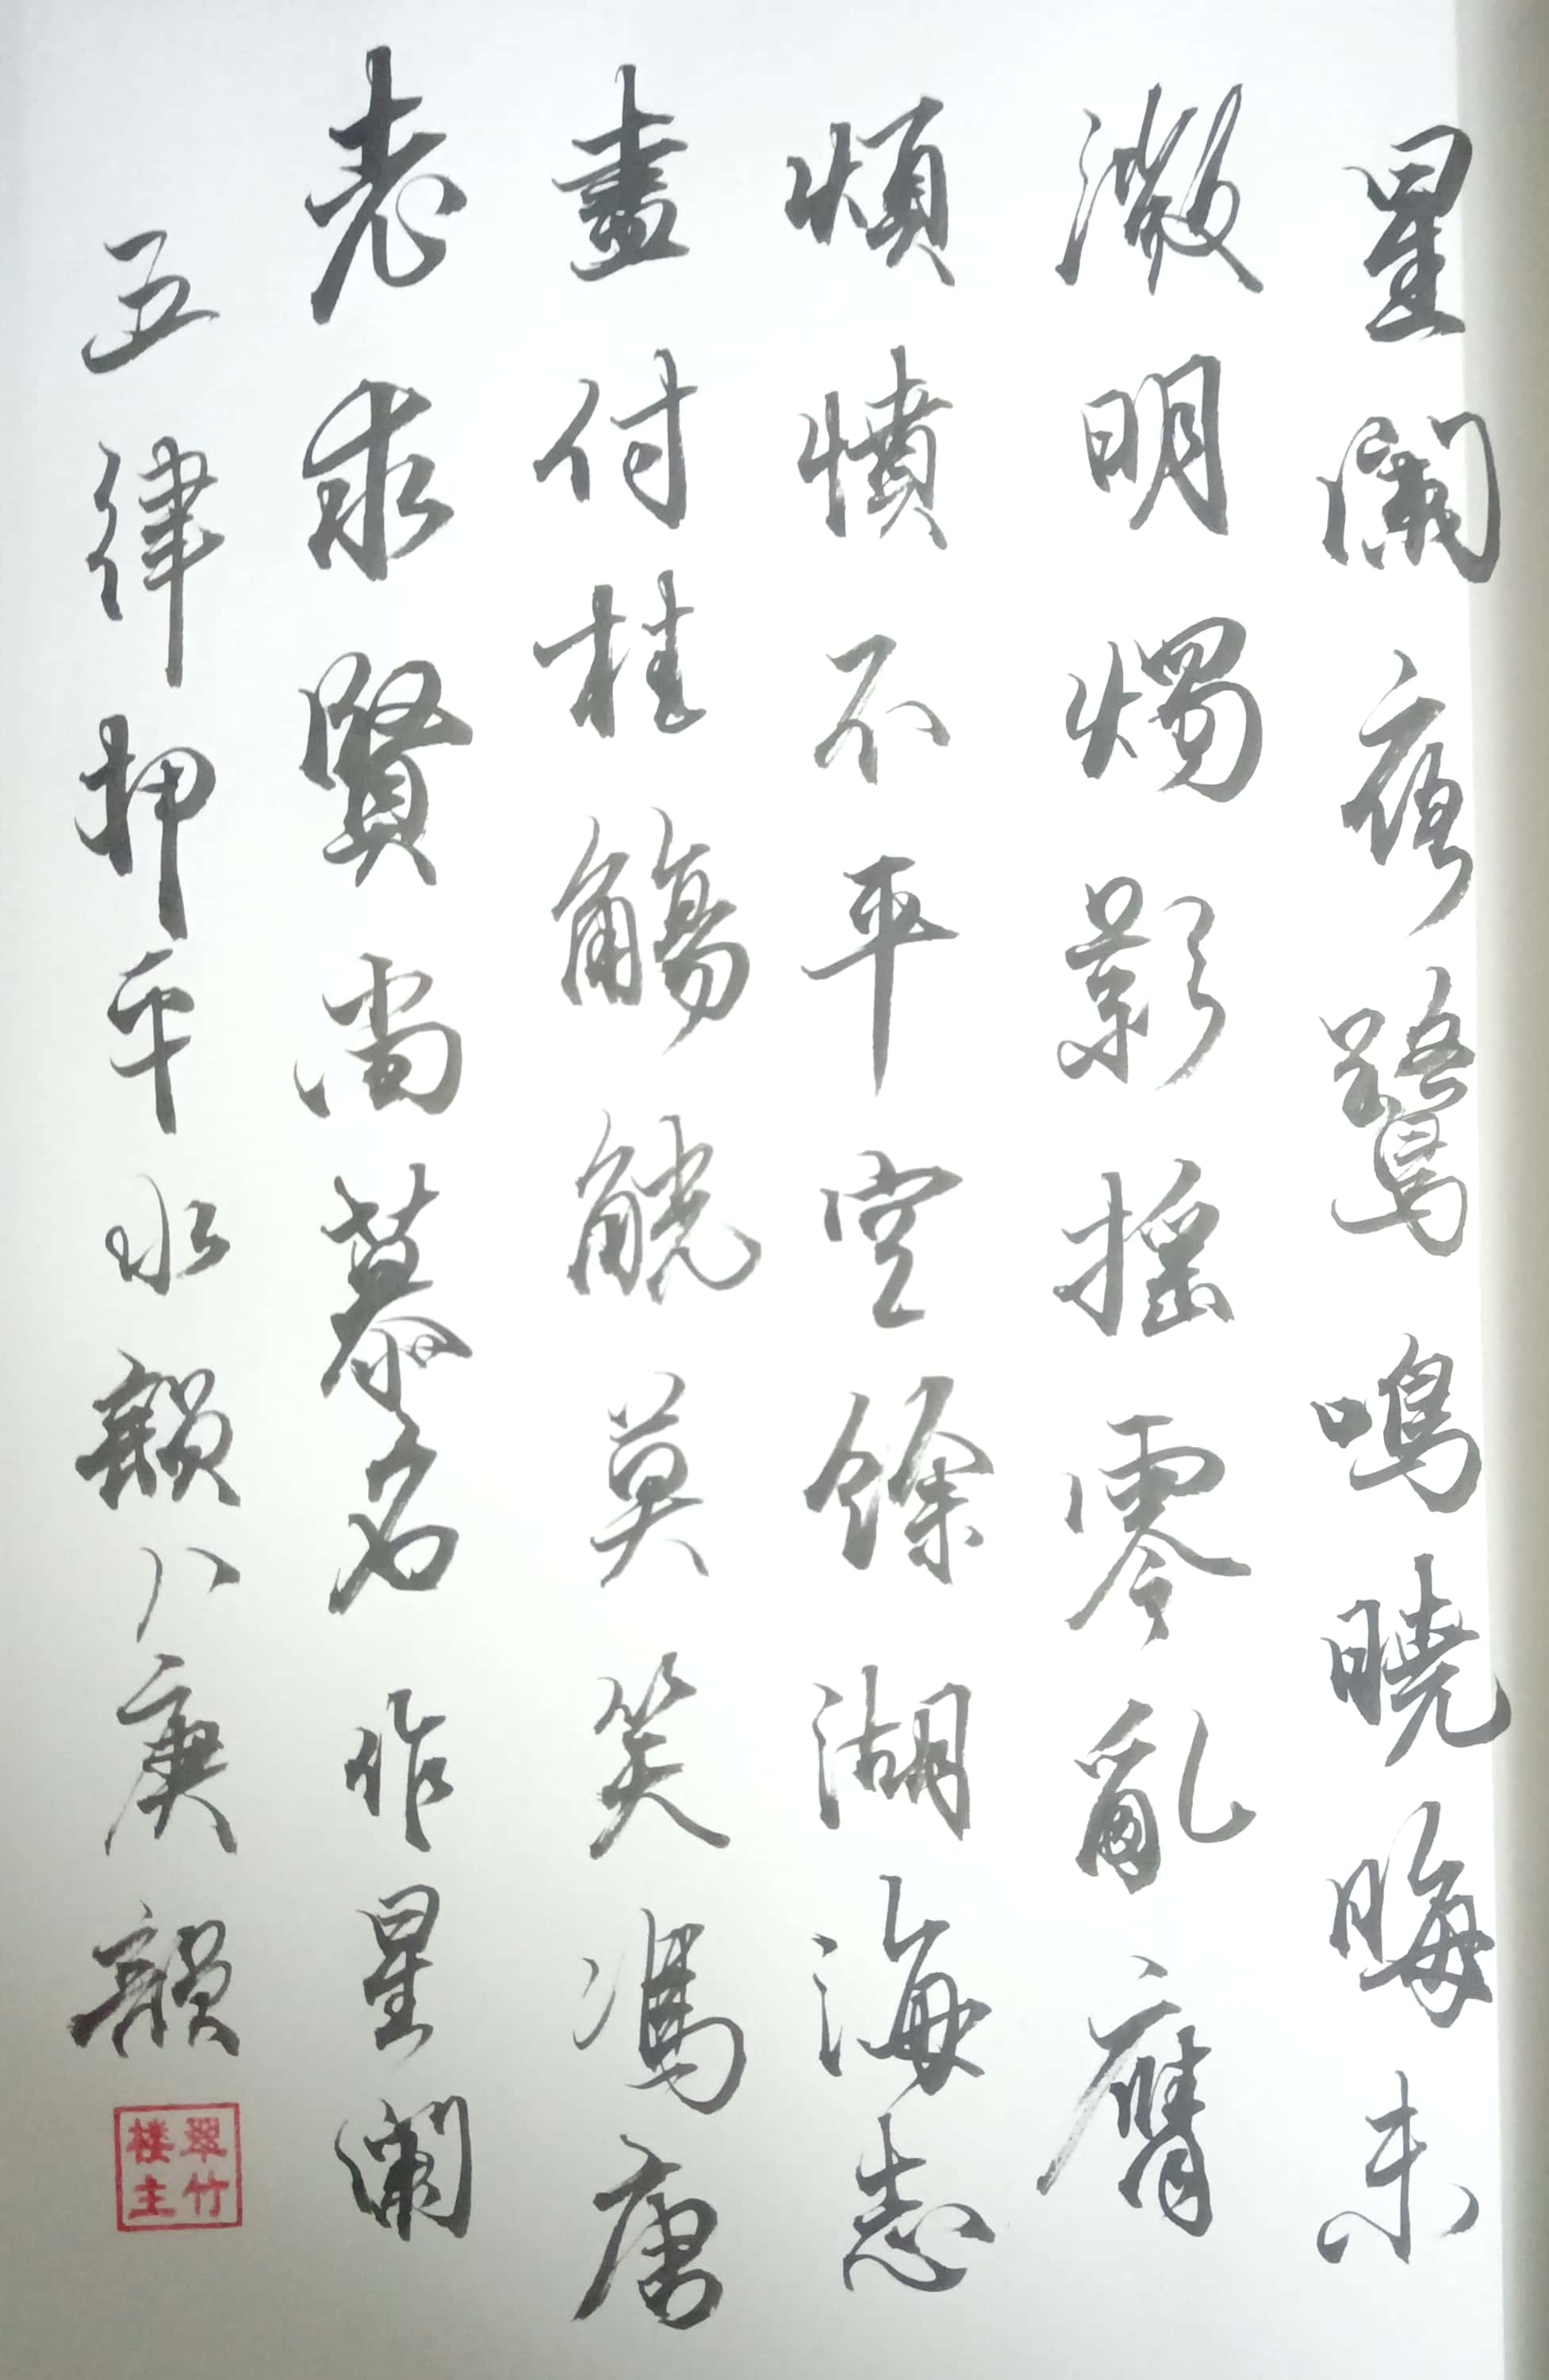 星闌夜鷺鳴曉晦未
澂明燭影搖零亂膺
煩憤不平空餘湖海志
盡付桂觴觥莫笑馮唐
老求賢尚慕名作星闌
五律押平水韻八庚韻
翠竹
楼主